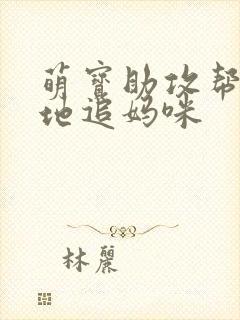 萌寶助攻帮
地追妈咪
林麗